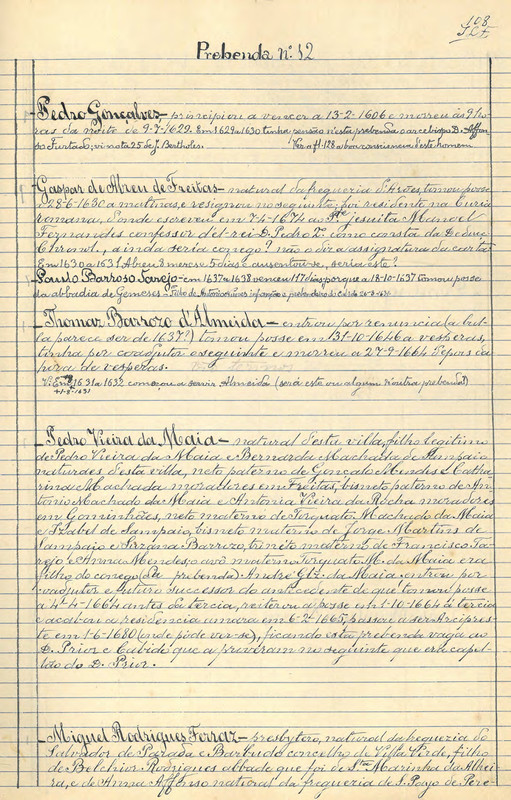 108
Prebenda nº 12
Pedro Gonçalves – principiou a vencer a 13-2-1606 e morreu ás 9 ho-
ras da noite de 9-7-1629. Em 1629 a 1630 tinha pensão n'esta prebenda o arcebispo D. Affon-
so Furtado; vi nota 25 de J. Bertholes. Ver a fl. 128 a bon consciencia d'este homem
Gaspar de Abreu de Freitas – natural da freguezia tomou posse
a 28-6-1630 a matinas, e resignou no seguinte; foi residente na Curia
romana, d'onde escreveu em 7-4-1674 ao Pe jesuita Manoel
Fernandes confessor del-rei D. Pedro 2º como consta da Deduc.
Chronol., ainda seria conego? não o diz a assignatura da carta
Em 1630 a 1631 Abreu 8 meses e 5 dias e ausentou-se, seria este?
Paulo Barroso Tarejo – em 1637 a 1638 venceu 117 dias porque a 18-10-1637 tomou posse
da abbadia de Gemeses
Thomaz Barrozo d'Almeida – entrou por renuncia (a bul-
la parece ser de 1637?) tomou posse em 31-10-1646 a vesperas,
tinha por coadjutor o seguinte e morreu a 27-9-1664 depois da
hora de vesperas.
Em 1631 a 1632 começou a servir Almeida (será este ou algum d'outra prebenda?)
Pedro Vieira da Maia – natural d'esta villa, filho legitimo
de Pedro Vieira da Maia e Bernarda Machada de Sampaio
naturaes d'esta villa, neto paterno de Gonçalo Mendes e Catha-
rina Machada moradores em Freitas, bisneto paterno de An-
tonio Machado da Maia e Antonia Vieira da Rocha moradores
em Gominhães, neto materno de Torquato Machado da Maia
e Izabel de Sampaio, bisneto materno de Jorge Martins de
Sampaio e Suzana Barrozo, trineto materno de Francisco Ta-
rejo e Anna Mendes; o avô materno Torquato M. da Maia era
filho do conego (da prebenda) André Glz. da Maia; entrou por
coadjutor e futuro successor do antecedente de que tomou posse
a 4-4-1664 antes da tercia, reiterou a posse em 1-10-1664 á tercia
e acabou a residencia amara em 6-2-1665, passou a ser Arcipres-
te em 1-6-1680 (onde póde ver-se), ficando esta prebenda vaga ao
D. Prior e Cabido que a proveram no seguinte que era capel-
lão do D. Prior.
Miguel Rodrigues Ferraz – presbytero, natural da freguezia do
Salvador de Parada e Barbudo concelho de Villa Verde, filho
de Belchior Rodrigues abbade que foi de Sta Marinha da Alhei-
ra, e de Anna Affonso natural da freguezia de S. Payo de Pere-